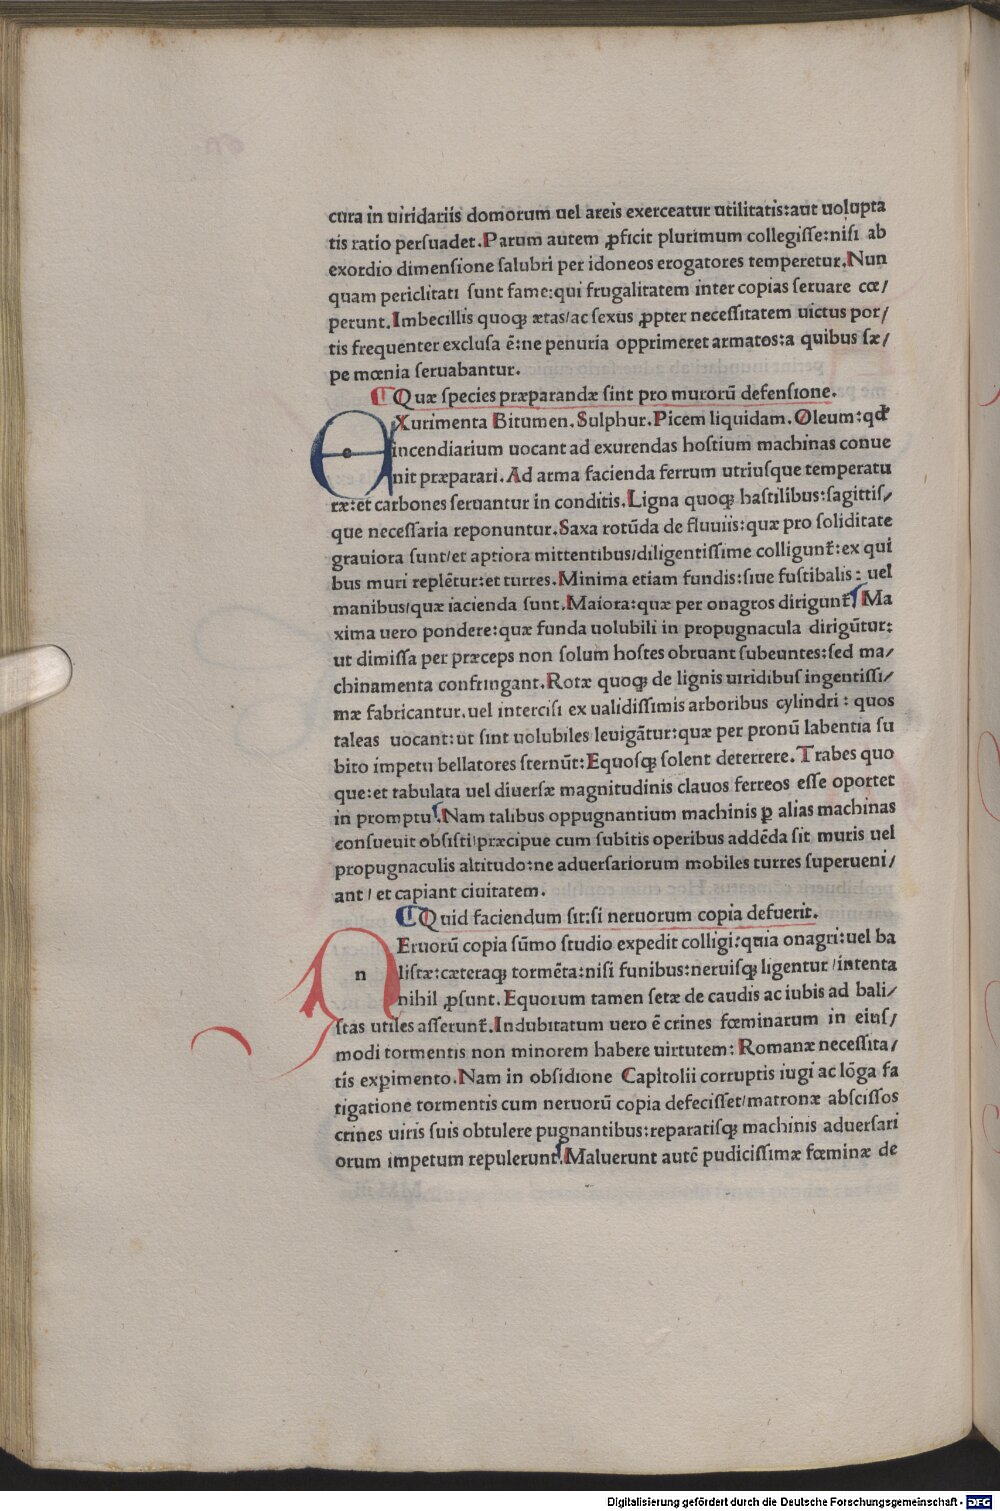 cura in uiridariis domorum uel areis exerceatur utilitatis:aut uolupta
tis ratio persuadet.Parum autem ꝓficit plurimum collegisse:nisi ab
exordio dimensione salubri per idoneos erogatores temperetur.Nun
quam periclitati sunt fame:qui frugalitatem inter copias seruare cœ/
perunt.Imbecillis quoqꝫ ætas/ac sexus ꝓpter necessitatem uictus por/
tis frequenter exclusa ē:ne penuria opprimeret armatos:a quibus sæ/
pe mœnia seruabantur.
Quæ species præparandæ sint pro murorū defensione.
eXurimenta Bitumen.Sulphur.Picem liquidam.Oleum:qđ
incendiarium uocant ad exurendas hostium machinas conue
nit præparari.Ad arma facienda ferrum utriusque temperatu
ræ:et carbones seruantur in conditis.Ligna quoqꝫ hastilibus:sagittis/
que necessaria reponuntur.Saxa rotūda de fluuiis:quæ pro soliditate
grauiora sunt/et aptiora mittentibus/diligentissime colligunt̄:ex qui
bus muri replētur:et turres.Minima etiam fundis:siue fustibalis: uel
manibus/quæ iacienda sunt.Maiora:quæ per onagros dirigunt̄.Ma
xima uero pondere:quæ funda uolubili in propugnacula dirigūtur:
ut dimissa per præceps non solum hostes obruant subeuntes:sed ma/
chinamenta confringant.Rotæ quoqꝫ de lignis uiridibus ingentissi/
mæ fabricantur.uel intercisi ex ualidissimis arboribus cylindri: quos
taleas uocant:ut sint uolubiles leuigātur:quæ per pronū labentia su
bito impetu bellatores sternūt:Equosqꝫ solent deterrere.Trabes quo
que:et tabulata uel diuersæ magnitudinis clauos ferreos esse oportet
in promptu.Nam talibus oppugnantium machinis ꝑ alias machinas
consueuit obsisti/præcipue cum subitis operibus addēda sit muris uel
propugnaculis altitudo:ne aduersariorum mobiles turres superueni/
ant/et capiant ciuitatem.
Quid faciendum sit:si neruorum copia defuerit.
nEruorū copia sūmo studio expedit colligi:quia onagri:uel ba
listæ:cæteraqꝫ tormēta:nisi funibus:neruisqꝫ ligentur/intenta
nihil ꝓsunt.Equorum tamen setæ de caudis ac iubis ad bali/
stas utiles asserunt̄.Indubitatum uero ē crines fœminarum in eius/
modi tormentis non minorem habere uirtutem:Romanæ necessita/
tis exꝑimento.Nam in obsidione Capitolii corruptis iugi ac lōga fa
tigatione tormentis cum neruorū copia defecisset/matronæ abscissos
crines uiris suis obtulere pugnantibus:reparatisqꝫ machinis aduersari
orum impetum repulerunt.Maluerunt autē pudicissimæ fœminæ de
Digitalisierung gefördert durch die Deutsche Forschungsgemeinschaft - DFG